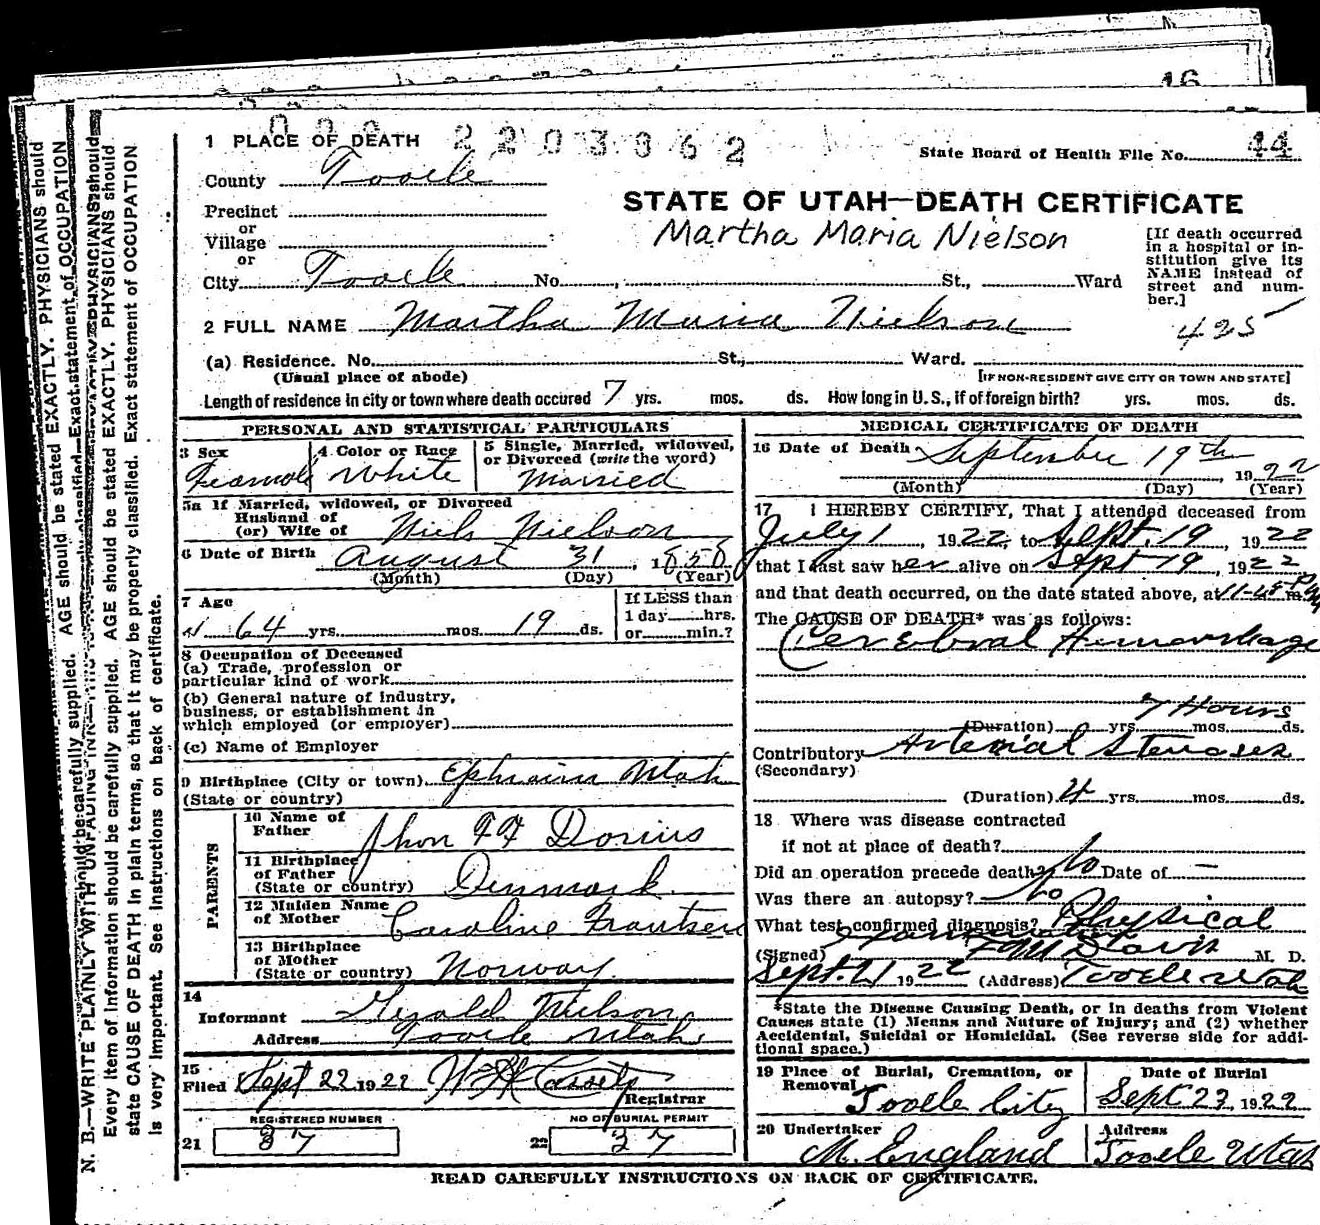 16
1 PLACE OF DEATH 2203962
State Board of Health File No. 44
County Tooele
STATE OF UTAH—DEATH CERTIFICATE
Precinct
or
Village
Martha Maria Nielson
[If death occurred in a hospital or institution give its NAME instead of street and number.]
or
City Tooele No. , St., Ward
2 FULL NAME Martha Maria Nielson
425
(a) Residence. No. St., Ward.
(Usual place of abode)
[IF NON-RESIDENT GIVE CITY OR TOWN AND STATE]
Length of residence in city or town where death occured 7 yrs. mos. ds. How long in U. S., if of foreign birth? yrs. mos. ds.
PERSONAL AND STATISTICAL PARTICULARS
3 Sex
Feamale
4 Color or Race
White
5 Single, Married, widowed, or Divorced (write the word)
Married
5a If Married, widowed, or Divorced
Husband of
(or) Wife of Niels Nielson
6 Date of Birth August 31, 1858
(Month) (Day) (Year)
7 Age
64 yrs. mos. 19 ds.
If LESS than
1 day hrs.
or min.?
8 Occupation of Deceased
(a) Trade, profession or
particular kind of work
(b) General nature of industry,
business, or establishment in
which employed (or employer)
(c) Name of Employer
9 Birthplace (City or town) Ephraim Utah
(State or country)
PARENTS
10 Name of
Father Jhon F F Dorius
11 Birthplace
of Father
(State or country) Denmark
12 Maiden Name
of Mother Caroline Frantsen
13 Birthplace
of Mother
(State or country) Norway
14
Informant Gerald Nielson
Address Tooele Utah
15
Filed Sept 22 1922
Registrar
REGISTERED NUMBER
21 37
NO OF BURIAL PERMIT
22 37
MEDICAL CERTIFICATE OF DEATH
16 Date of Death September 19th 1922
(Month) (Day) (Year)
17 I HEREBY CERTIFY, That I attended deceased from
July 1, 1922, to Sept. 19, 1922
that I last saw her alive on Sept 19, 1922
and that death occurred, on the date stated above, at 11-45 P m.
The CAUSE OF DEATH* was as follows:
Cerebral Hemorrhage
7 Hours
(Duration) yrs. mos. ds.
Contributory Arterial
(Secondary)
(Duration) 4 yrs. mos. ds.
18 Where was disease contracted
if not at place of death?
Did an operation precede death? No Date of —
Was there an autopsy? No
What test confirmed diagnosis? Physical
Examination
(Signed) Davis M. D.
Sept. 21 1922 (Address) Tooele Utah
*State the Disease Causing Death, or in deaths from Violent
Causes state (1) Means and Nature of Injury; and (2) whether
Accidental, Suicidal or Homicidal. (See reverse side for addi-
tional space.)
19 Place of Burial, Cremation, or
Removal
Tooele City
Date of Burial
Sept 23, 1922
20 Undertaker
M. England
Address
Tooele Utah
READ CAREFULLY INSTRUCTIONS ON BACK OF CERTIFICATE.
N. B.—WRITE PLAINLY WITH UNFADING INK
Every item of information should be carefully supplied. AGE should be stated EXACTLY. PHYSICIANS should
state CAUSE OF DEATH in plain terms, so that it may be properly classified. Exact statement of OCCUPATION
is very important. See Instructions on back of certificate.